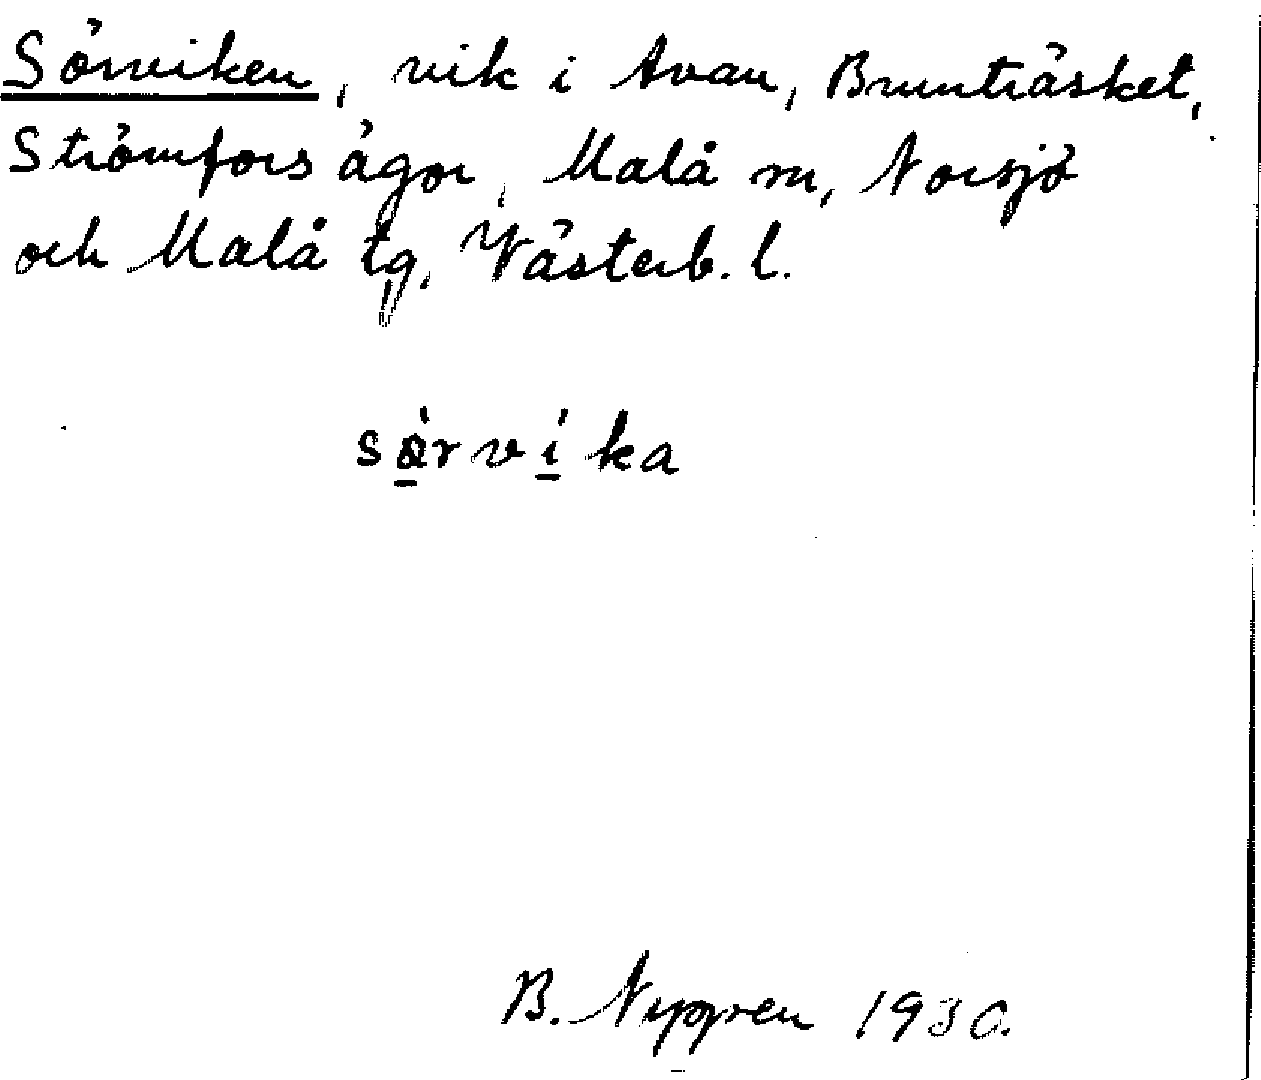 Sörviken, vik i Avan, Brunträsket,
Strömfors ägor, Malå sn, Norsjö
och Malå tg, Västerb. l.
sø̱̀rví̱ka
B. Nygren 1930.